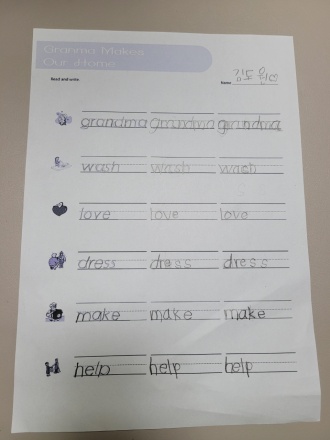 Granma Makes
Our Home
Read and write.
Name
grandma grandma grandma
wash wash wash
love love love
dress dress dress
make make make
help help help